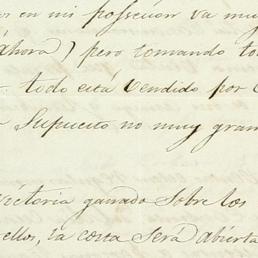 en mi posicion va muy
ahora) pero tomando to
todo está vendido por
Supuesto no muy gran
victoria ganado sobre los
ellos, la costa será abierta